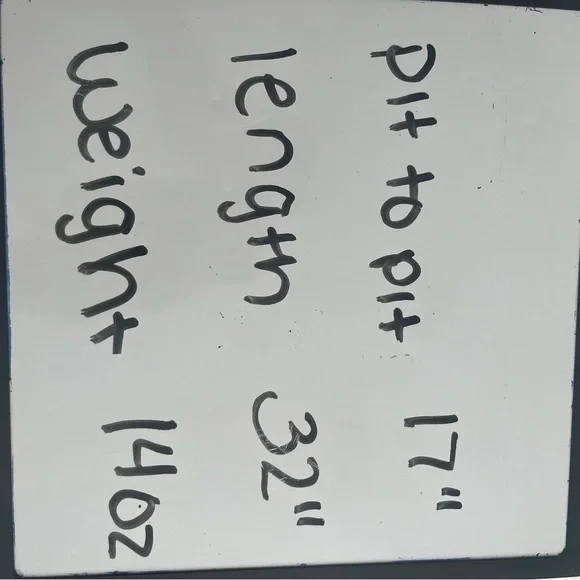 pit to pit 17"
length 32"
weight 14oz